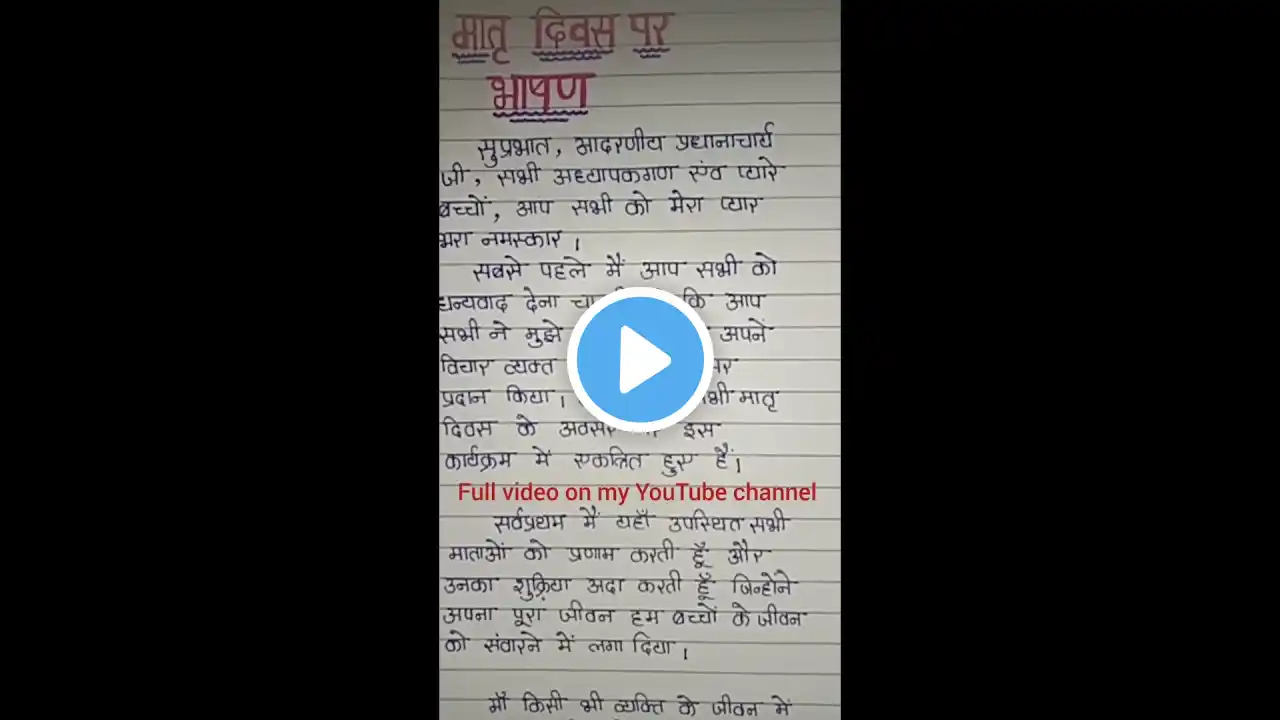 मातृ दिवस पर
भाषण
सुप्रभात, आदरणीय प्रधानाचार्य
जी, सभी अध्यापकगण एंव प्यारे
बच्चों, आप सभी को मेरा प्यार
भरा नमस्कार।
सबसे पहले मैं आप सभी को
धन्यवाद देना कि आप
सभी ने मुझे अपनें
विचार व्यक्त
प्रदान किया। मातृ
दिवस के इस
कार्यक्रम में एकत्रित हुए हैं।
Full video on my YouTube channel
सर्वप्रथम मैं यहाँ उपस्थित सभी
माताओं को प्रणाम करती हूँ और
उनका शुक्रिया अदा करती हूँ जिन्होंने
अपना पूरा जीवन हम बच्चों के जीवन
को संवारने में लगा दिया।
माँ किसी भी व्यक्ति के जीवन में